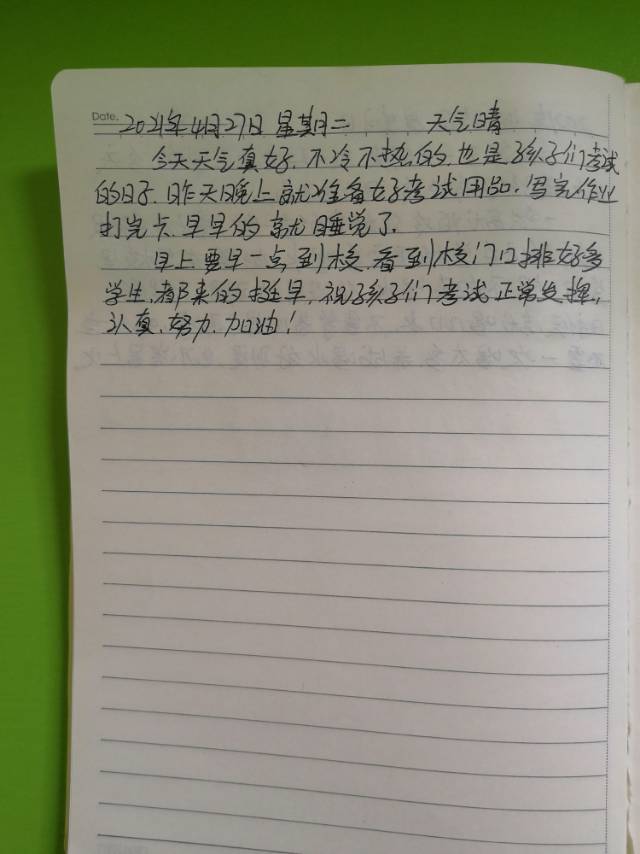 Date.
2021年4月27日 星期二 天气晴
今天天气真好.不冷不热的.也是孩子们考试
的日子.昨天晚上就准备好考试用品.写完作业
打完卡.早早的就睡觉了.
早上要早一点到校.看到校门口排好多
学生.都来的挺早.祝孩子们考试正常发挥,
认真.努力.加油!